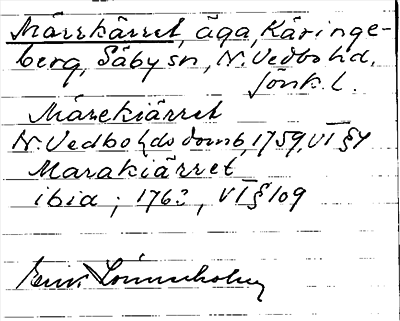 Märrkärret, äga, Käringe-
berg, Säby sn, N. Vedbo hd,
Jönk. l.
Märekiärret
N. Vedbo hds domb, 1759, VI § 4
Marakiärret
ibid; 1762, VI § 109